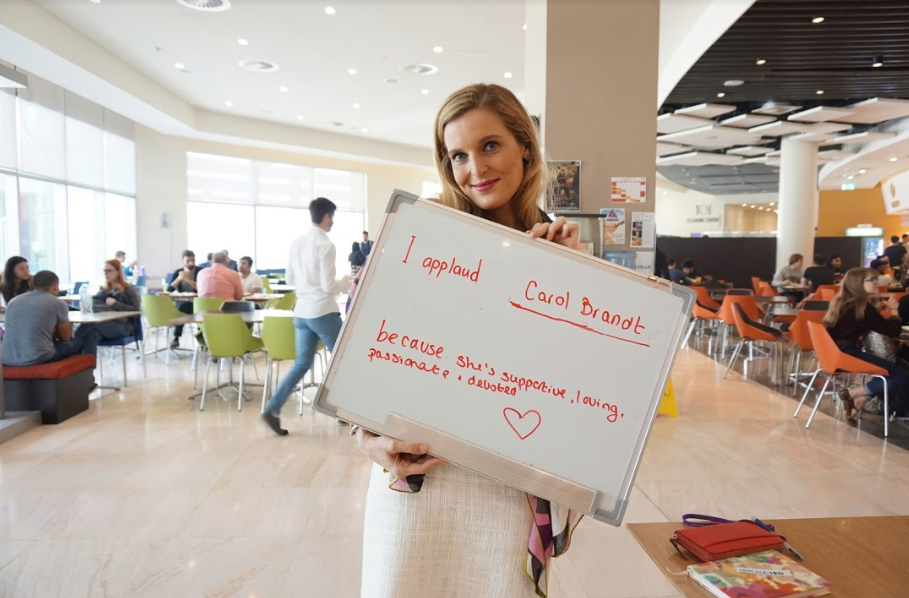 I applaud Carol Brandt
because she's supportive, loving,
passionate + devoted